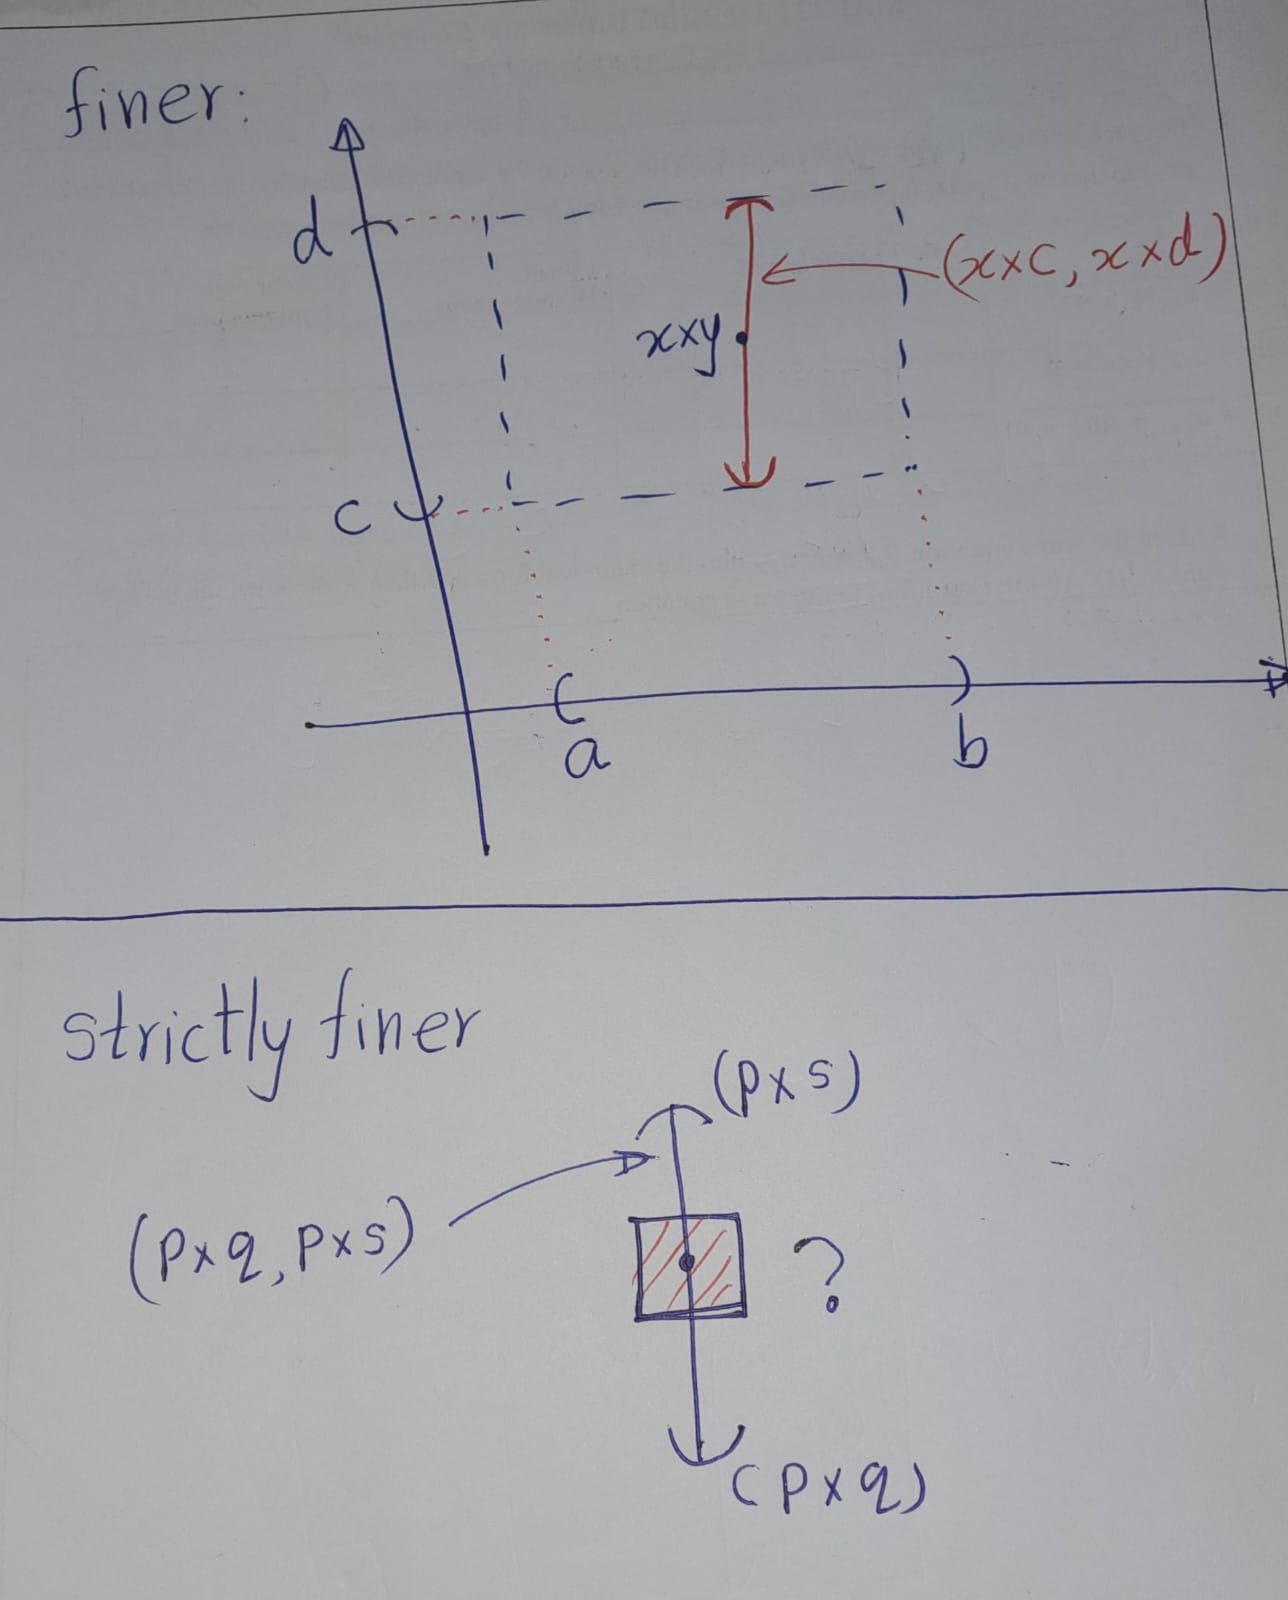 finer:
d
(x×c, x×d)
x×y
c
a
b
strictly finer
(p×s)
(p×q, p×s)
?
(p×q)